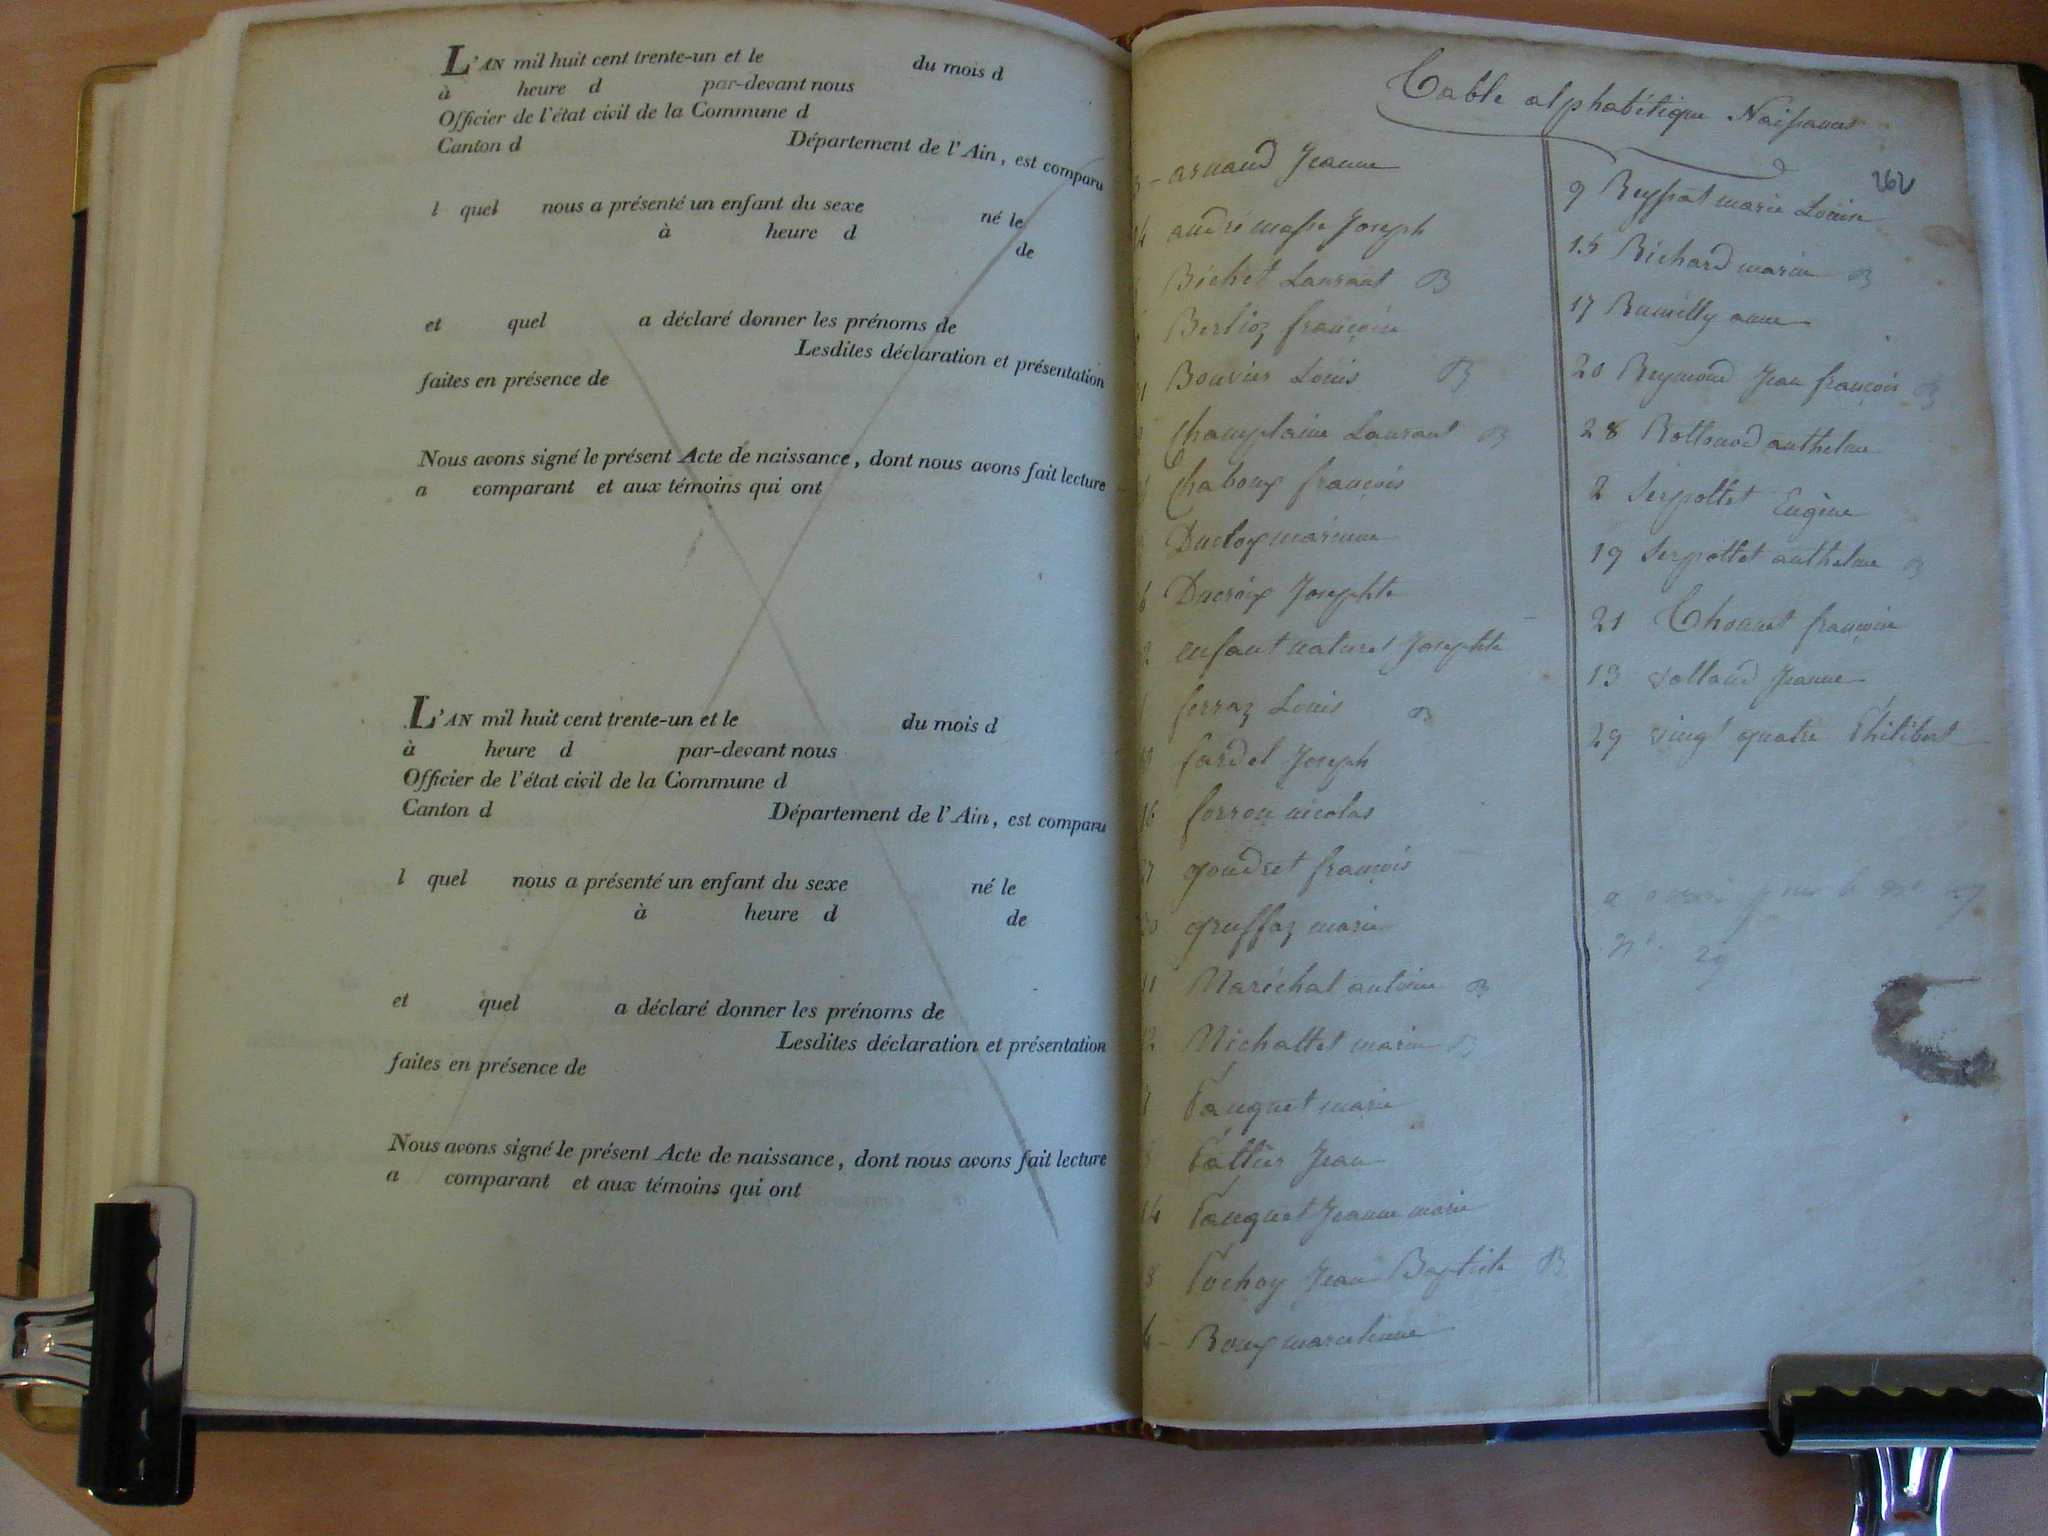 L'AN mil huit cent trente-un et le du mois d
à heure d par-devant nous
Officier de l'état civil de la Commune d
Canton d Département de l'Ain, est comparu
l quel nous a présenté un enfant du sexe né le
à heure d de
et quel a déclaré donner les prénoms de
Lesdites déclaration et présentation
faites en présence de
Nous avons signé le présent Acte de naissance, dont nous avons fait lecture
a comparant et aux témoins qui ont
L'AN mil huit cent trente-un et le du mois d
à heure d par-devant nous
Officier de l'état civil de la Commune d
Canton d Département de l'Ain, est comparu
l quel nous a présenté un enfant du sexe né le
à heure d de
et quel a déclaré donner les prénoms de
Lesdites déclaration et présentation
faites en présence de
Nous avons signé le présent Acte de naissance, dont nous avons fait lecture
a comparant et aux témoins qui ont
Table alphabétique Naissances
262
arnaud Jeanne
andré masse Joseph
Bichet Laurant B
Berlioz françoise
Bouvier Louis B
Champlaine Laurant B
Chaboux françois
Ducloy marianne
Ducroix Josephte
enfant naturel Josephte
ferraz Louis B
fardel Joseph
16 ferrou nicolas
goudret françois
gruffaz marie
11 Maréchal antoine B
Michallet marie B
Pauquet marie
Pallier Jean
14 Pauquet Jeanne marie
Pochoy Jean Baptiste B
Roux marcelinne
9 Reyssat marie Louise
15 Richard marie B
17 Rumilly anne
20 Reymond Jean françois B
28 Rollonod anthelme
2 Serpollet Eugène
19 Serpollet anthelme B
21 Thonnet françoise
13 Volland Jeanne
29 vingt quatre Philibert
29